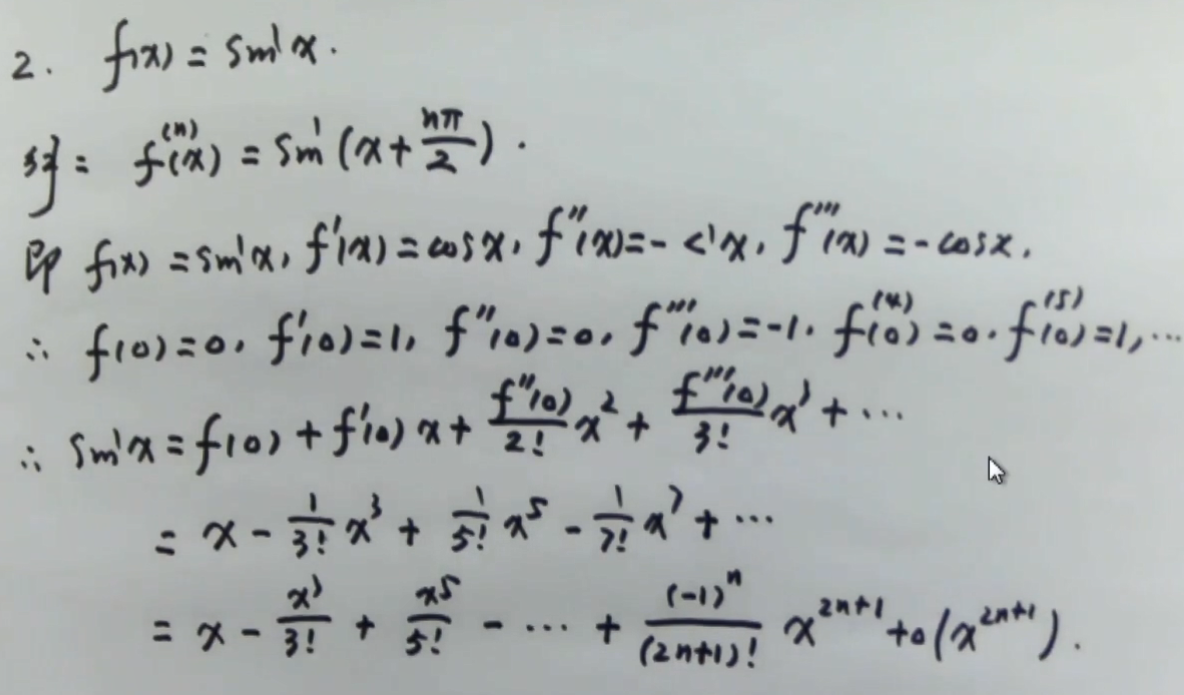 2. f(x) = sin x.
解: f⁽ⁿ⁾(x) = sin (x + nπ/2).
即 f(x) = sin x, f'(x) = cos x, f''(x) = - sin x, f'''(x) = - cos x.
∴ f(0) = 0, f'(0) = 1, f''(0) = 0, f'''(0) = -1. f⁽⁴⁾(0) = 0. f⁽⁵⁾(0) = 1, ...
∴ sin x = f(0) + f'(0) x + f''(0)/2! x² + f'''(0)/3! x³ + ...
= x - 1/3! x³ + 1/5! x⁵ - 1/7! x⁷ + ...
= x - x³/3! + x⁵/5! - ... + (-1)ⁿ/(2n+1)! x²ⁿ⁺¹ + o(x²ⁿ⁺¹).